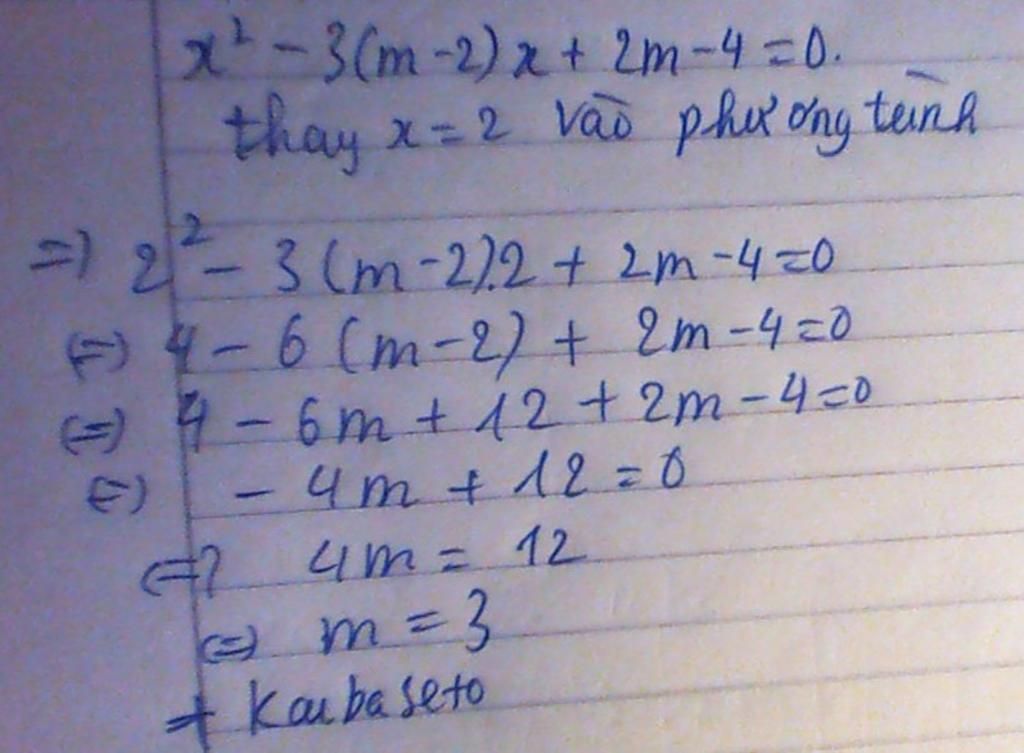 x² - 3(m-2)x + 2m-4=0.
thay x=2 vào phương trình
=) 2² - 3(m-2).2 + 2m-4=0
(=) 4 - 6(m-2) + 2m-4=0
(=) 4 - 6m + 12 + 2m-4=0
(=) - 4m + 12 = 0
(=) 4m = 12
(=) m = 3
+ Kaubaseto